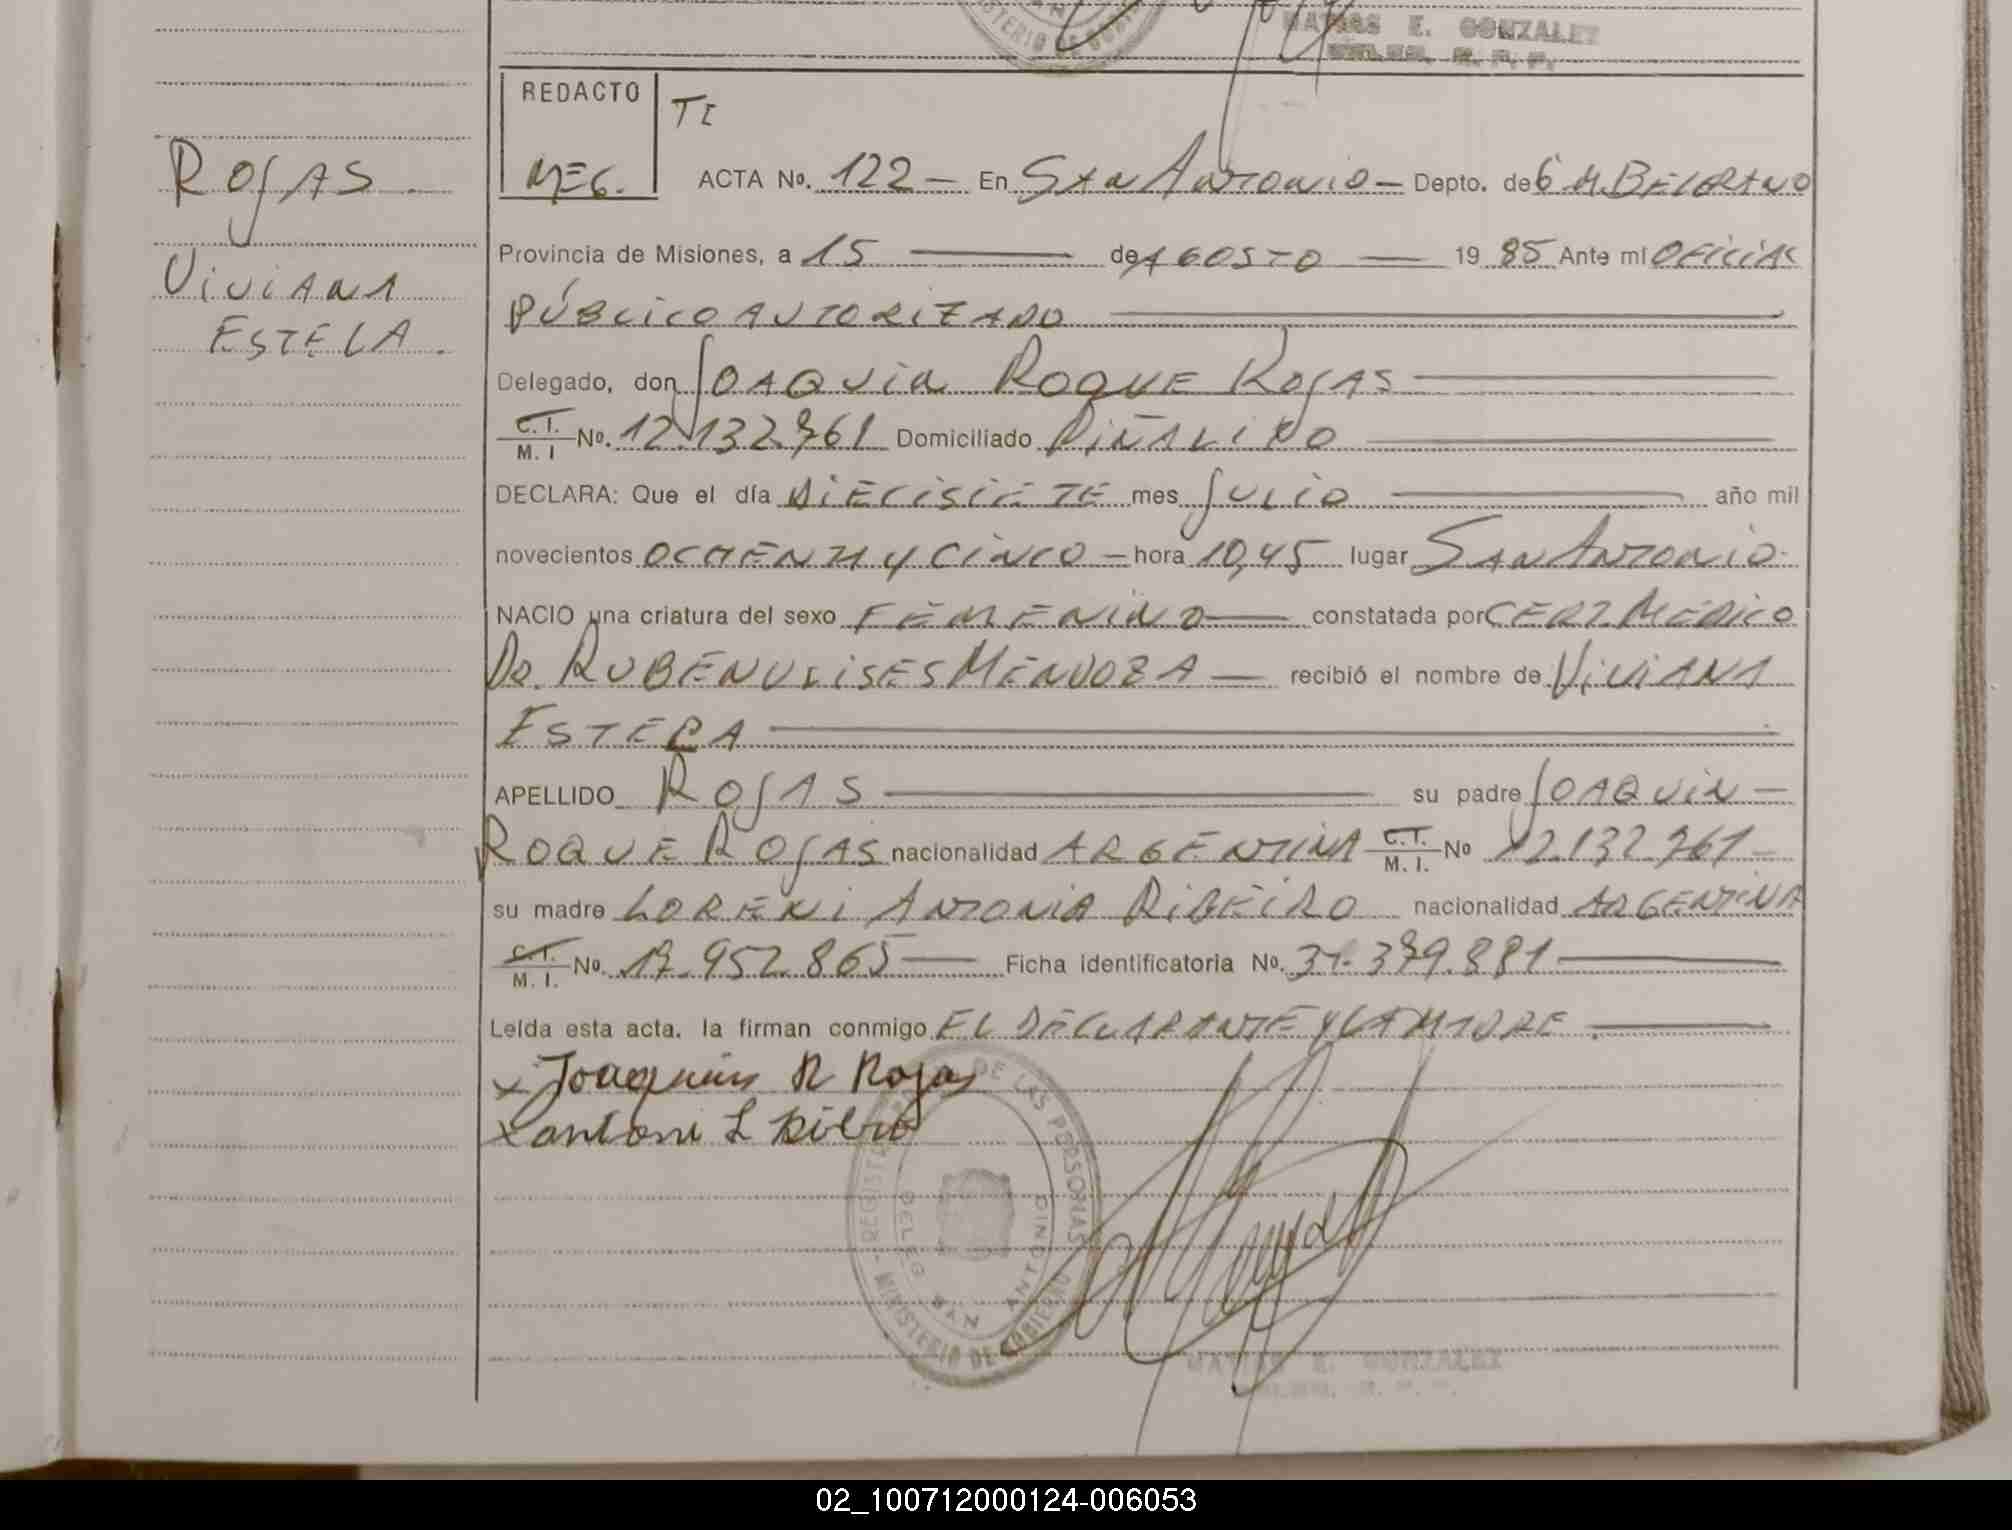 MINISTERIO DE GOBIERNO
MATIAS E. GONZALEZ
REDACTO
TI
MEG.
ROJAS
VIVIANA
ESTELA.
ACTA No. 122 — En SAN ANTONIO — Depto. de G. M. BELGRANO
Provincia de Misiones, a 15 — de AGOSTO — 19 85 Ante mi OFICIAL
PÚBLICO AUTORIZADO —
Delegado, don JOAQUIN ROQUE ROJAS —
C.I. M. I No. 12.132.761 Domiciliado PIÑALITO —
DECLARA: Que el día DIECISIETE mes JULIO — año mil
novecientos OCHENTA Y CINCO — hora 10,45 lugar SAN ANTONIO
NACIO una criatura del sexo FEMENINO — constatada por CERT. MEDICO
DR. RUBEN ULISES MENDOZA — recibió el nombre de VIVIANA
ESTELA —
APELLIDO ROJAS — su padre JOAQUIN —
ROQUE ROJAS nacionalidad ARGENTINA C.I. M. I. No 12.132.761 —
su madre LORENI ANTONIA RIBEIRO nacionalidad ARGENTINA
C.I. M. I. No. 17.952.865 — Ficha identificatoria No. 31.379.881 —
Leída esta acta, la firman conmigo EL DECLARANTE Y LA MADRE. —
x Joaquin R Rojas
x antoni L
REGISTRO DE LAS PERSONAS
DELEG. SAN ANTONIO
MINISTERIO DE GOBIERNO
MATIAS E. GONZALEZ
02_100712000124-006053